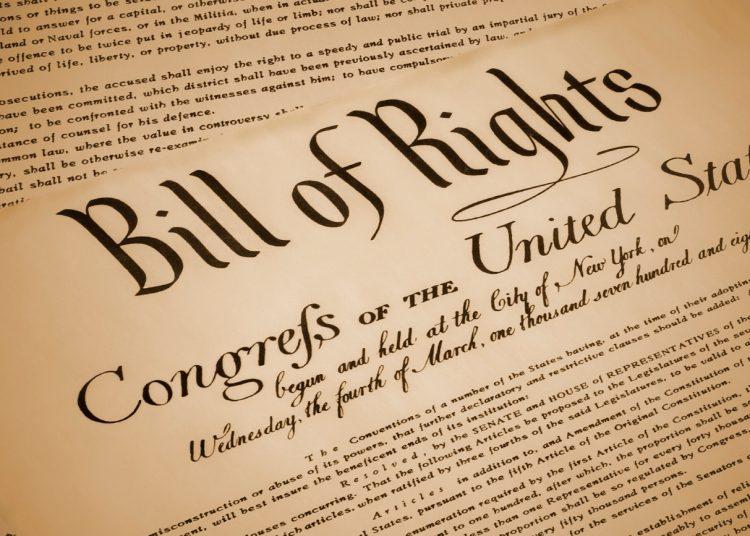 ts shall
ons or things to be se
ld to answer for a capital, or otherwise
land or Naval forces, or in the Militia, when in actual
e offence to be twice put in jeopardy of life or limb; nor shall be
rived of life, liberty, or property, without due process of law; nor shall private prop
osecutions, the accused shall enjoy the right to a speedy and public trial by an impartial jury of the
have been committed, which district shall have been previously ascertained by law, and
on; to be confronted with the witnesses against him; to have compulsory
stance of counsel for his defence.
ommon law, where the value in controversy shall
ry, shall be otherwise re-exami
bail shall not be
Bill of Rights
Congreſs OF THE United Stat
begun and held at the City of New York, on
Wednesday, the fourth of March, one thousand seven hundred and eig
The Conventions of a number of the States having, at the time of their adopting
misconstruction or abuse of its powers, that further declaratory and restrictive clauses should be added:
ent, will best insure the beneficent ends of its institution:
Resolved, by the SENATE and HOUSE of REPRESENTATIVES of the
ouses concurring. That the following Articles be proposed to the Legislatures of the
hich articles, when ratified by three fourths of the said Legislatures, to be valid to
Articles in addition to, and Amendment of the Constitution of
al States, pursuant to the fifth Article of the Original Constitution.
enumeration required by the first Article of the Constitution,
to one hundred, after which, the proportion shall be
less than one Representative for every forty thousand
proportion shall be so regulated by Congress,
very fifty thousand persons.
for the services of the Senators
establishment of reli